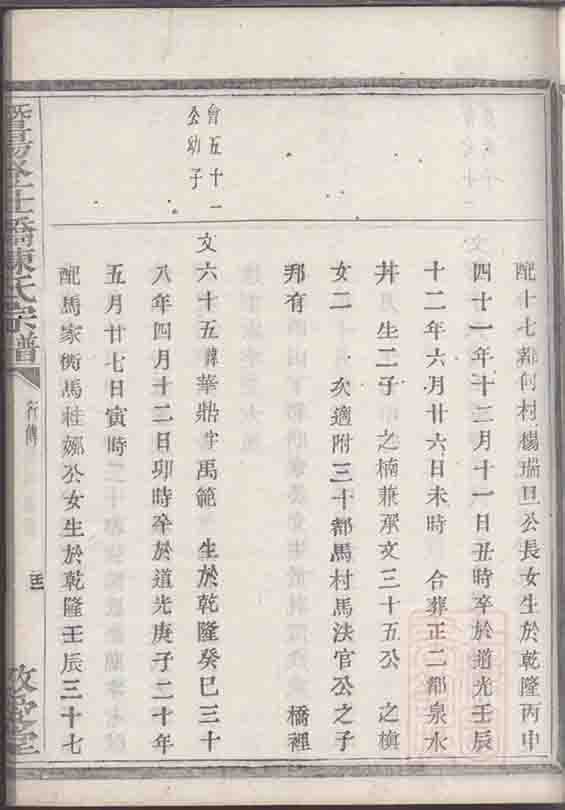 配十七都何村楊瑞旦公長女生於乾隆丙申
四十一年十二月十一日丑時卒於道光壬辰
十二年六月廿六日未時 合葬正二都泉水
井 生二子 之楠兼承文三十五公 之槙
女二 次適附三十都馬村馬法官公之子
邦有 橋裡
曾五十一
公幼子
文六十五諱華鼎字禹範 生於乾隆癸巳三十
八年四月十二日卯時卒於道光庚子二十年
五月廿七日寅時
配馬家衖馬桂公女生於乾隆壬辰三十七
暨陽橋陳氏宗譜
行傳
敦愛堂